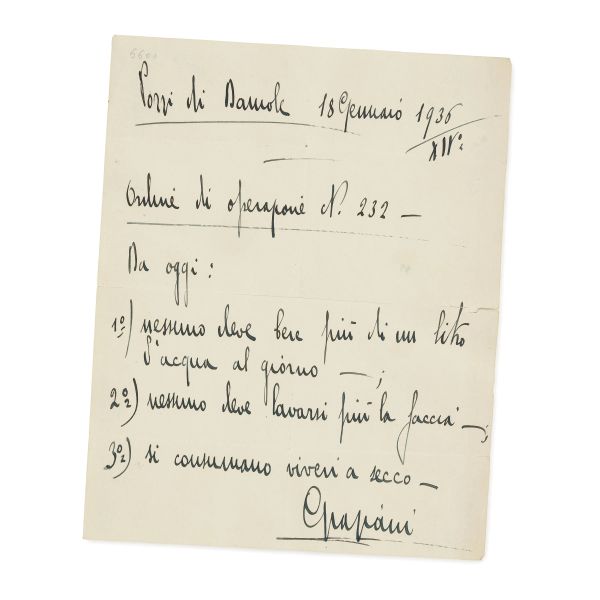 Pozzi di Damole 18 Gennaio 1936
XIVº
Ordine di operazione N. 232 —
Da oggi :
1º) nessuno deve bere più di un litro
d'acqua al giorno — ;
2º) nessuno deve lavarsi più la faccia — ;
3º) si consumano viveri a secco —
Graziani